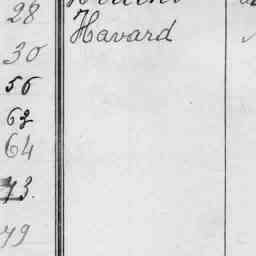 28
Havard
30
56
63
64
73.
79